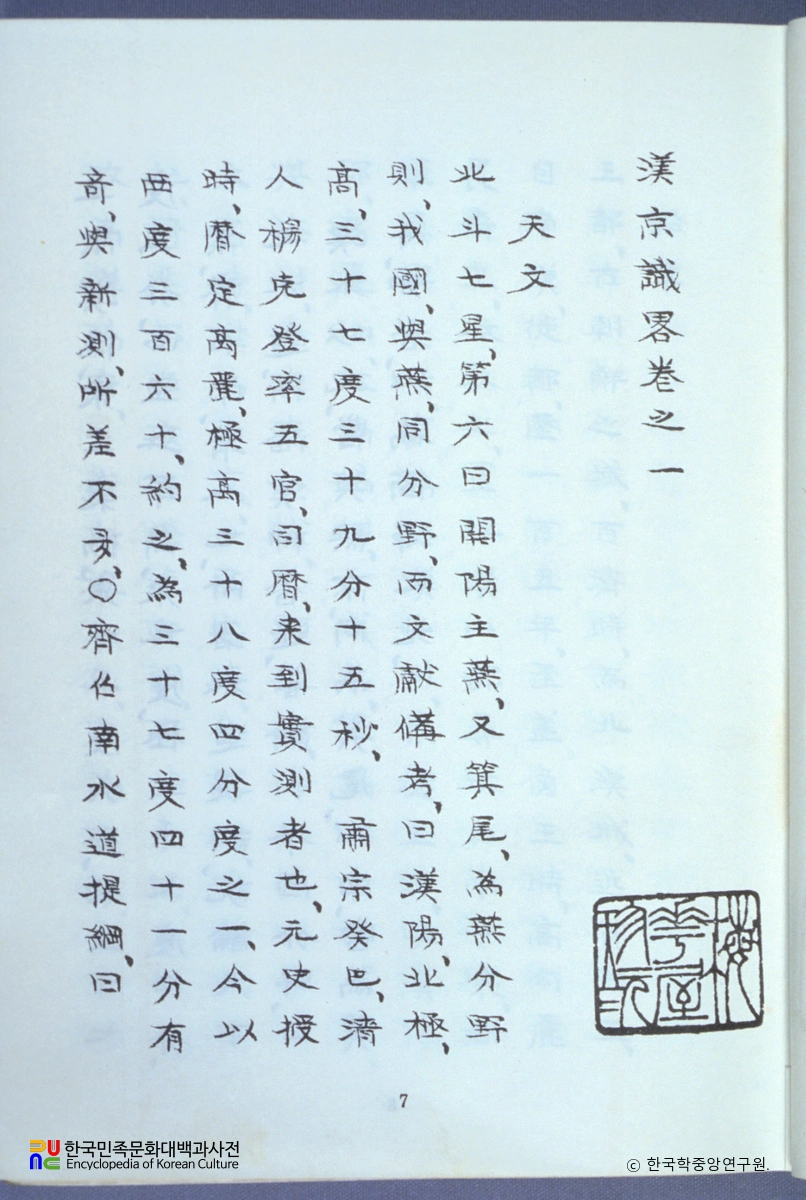 漢京識畧卷之一
天文
北斗七星、第六曰開陽主燕、又箕尾、為燕分野
則、我國、與燕、同分野、而文献備考、曰漢陽、北極、
高、三十七度三十九分十五秒、肅宗癸巳、清
人楊克登率五官、司曆、来到實測者也、元史授
時、曆定高麗、極高三十八度四分度之一、今以
西度三百六十、約之、為三十七度四十一分有
奇、與新測、所差不多、○齊召南水道提綱、曰
梅華屋珍玩
7
한국민족문화대백과사전
Encyclopedia of Korean Culture
ⓒ 한국학중앙연구원.